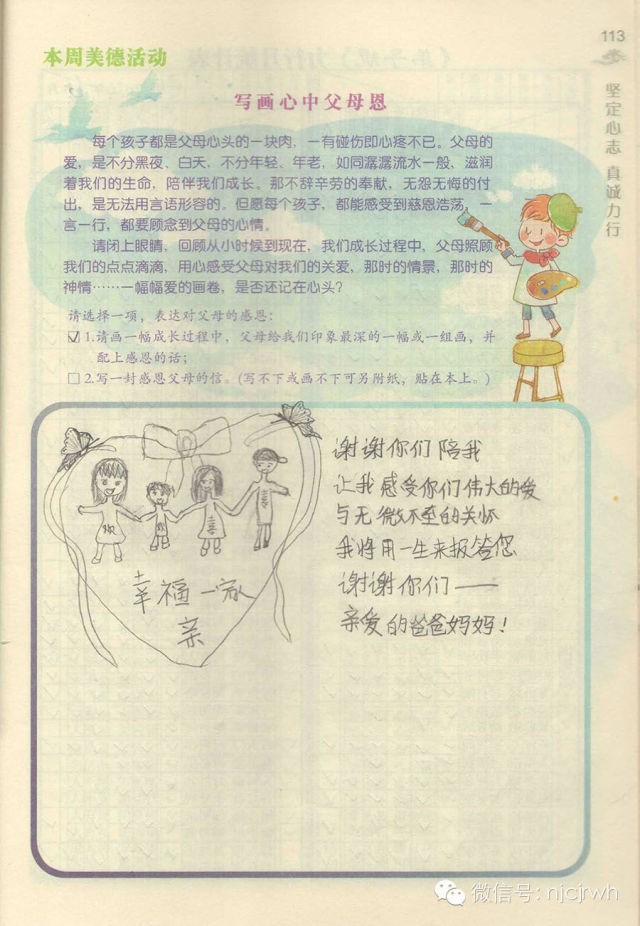 113
坚定心志 真诚力行
本周美德活动
写画心中父母恩
每个孩子都是父母心头的一块肉，一有碰伤即心疼不已。父母的
爱，是不分黑夜、白天，不分年轻、年老，如同潺潺流水一般，滋润
着我们的生命，陪伴我们成长。那不辞辛劳的奉献，无怨无悔的付
出，是无法用言语形容的。但愿每个孩子，都能感受到慈恩浩荡，一
言一行，都要顾念到父母的心情。
请闭上眼睛，回顾从小时候到现在，我们成长过程中，父母照顾
我们的点点滴滴，用心感受父母对我们的关爱，那时的情景，那时的
神情……一幅幅爱的画卷，是否还记在心头？
请选择一项，表达对父母的感恩：
☑ 1.请画一幅成长过程中，父母给我们印象最深的一幅或一组画，并
配上感恩的话；
□ 2.写一封感恩父母的信。（写不下或画不下可另附纸，贴在本上。）
幸福一家
亲
谢谢你们陪我
让我感受你们伟大的爱
与无微不至的关怀
我将用一生来报答您
谢谢你们——
亲爱的爸爸妈妈！
微信号: njcjrwh